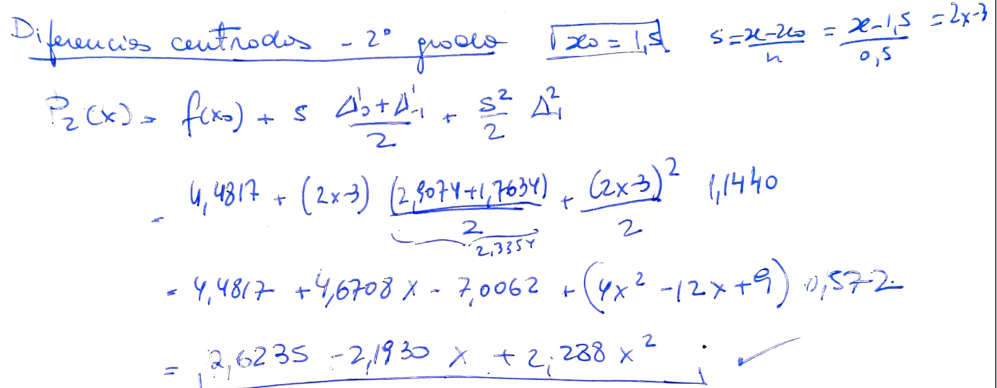 Diferencias centradas - 2º grado x0 = 1,5 s = x-x0/h = x-1,5/0,5 = 2x-3
P2(x) = f(x0) + s Δ¹0+Δ¹-1/2 + s²/2 Δ²-1
= 4,4817 + (2x-3) (2,9074+1,7634)/2 + (2x-3)²/2 1,1440
2,3354
= 4,4817 + 4,6708 x - 7,0062 + (4x² - 12x + 9) 0,572
= 2,6235 - 2,1930 x + 2,288 x²